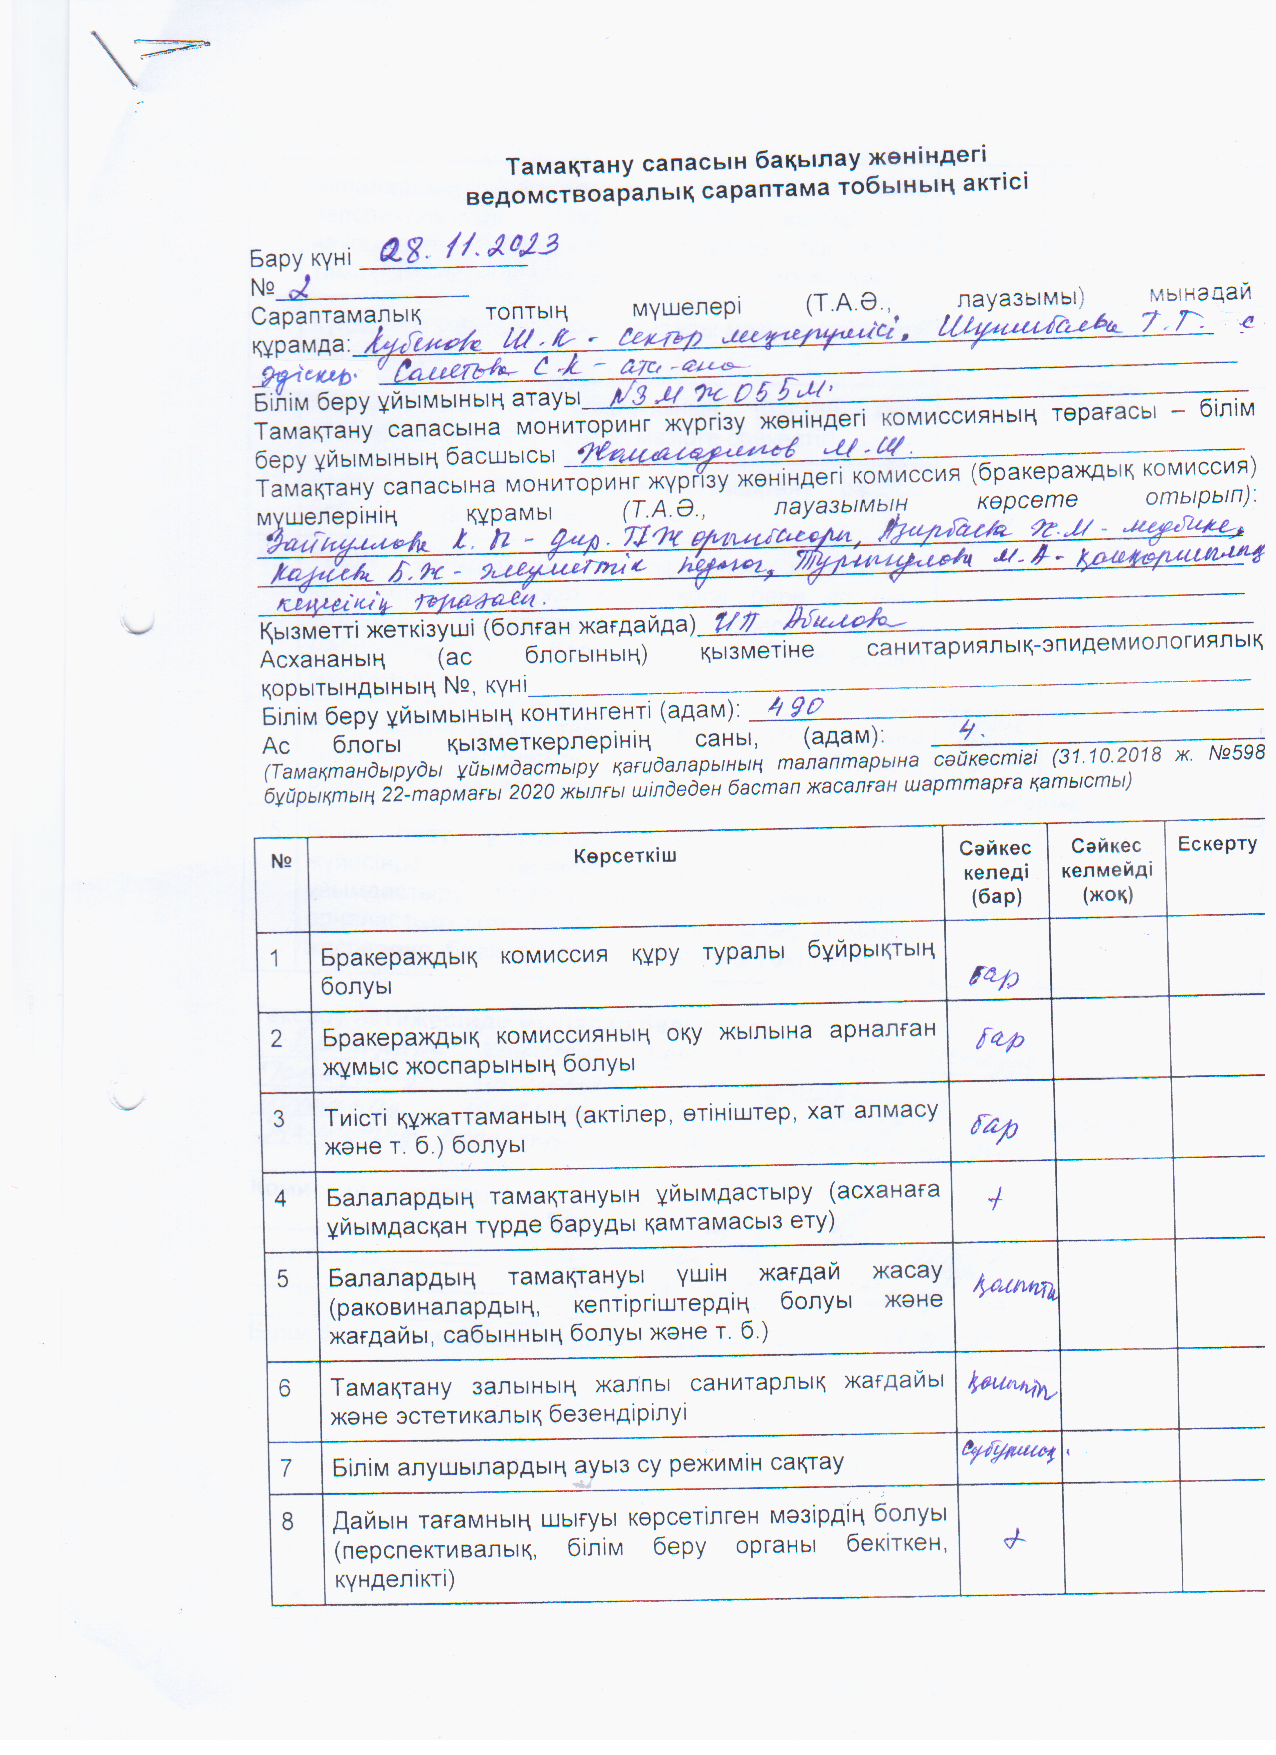 Тамақтану сапасын бақылау жөніндегі
ведомствоаралық сараптама тобының актісі
Бару күні 28.11.2023
№ 2
Сараптамалық топтың мүшелері (Т.А.Ә., лауазымы) мынадай
құрамда: Кубенова Ш.К - сектор меңгерушісі, Т.Г.
әдіскер. Саметова С.К - ата-ана
Білім беру ұйымының атауы N3 М Ж О Б Б М.
Тамақтану сапасына мониторинг жүргізу жөніндегі комиссияның төрағасы – білім
беру ұйымының басшысы М.Ш.
Тамақтану сапасына мониторинг жүргізу жөніндегі комиссия (бракераждық комиссия)
мүшелерінің құрамы (Т.А.Ә., лауазымын көрсете отырып):
Зайнуллова К.П - дир. ТІЖ орынбасары, Ж.М - медбике,
Казиева Б.Ж - әлеуметтік педагог, М.А - қамқоршылық
кеңесінің төрағасы.
Қызметті жеткізуші (болған жағдайда) ИП Абилова
Асхананың (ас блогының) қызметіне санитариялық-эпидемиологиялық
қорытындының №, күні
Білім беру ұйымының контингенті (адам): 490
Ас блогы қызметкерлерінің саны, (адам): 4.
(Тамақтандыруды ұйымдастыру қағидаларының талаптарына сәйкестігі (31.10.2018 ж. №598
бұйрықтың 22-тармағы 2020 жылғы шілдеден бастап жасалған шарттарға қатысты)
№ Көрсеткіш Сәйкес келеді (бар) Сәйкес келмейді (жоқ) Ескерту
1 Бракераждық комиссия құру туралы бұйрықтың
болуы бар
2 Бракераждық комиссияның оқу жылына арналған
жұмыс жоспарының болуы бар
3 Тиісті құжаттаманың (актілер, өтініштер, хат алмасу
және т. б.) болуы бар
4 Балалардың тамақтануын ұйымдастыру (асханаға
ұйымдасқан түрде баруды қамтамасыз ету) +
5 Балалардың тамақтануы үшін жағдай жасау
(раковиналардың, кептіргіштердің болуы және
жағдайы, сабынның болуы және т. б.) қалыпты
6 Тамақтану залының жалпы санитарлық жағдайы
және эстетикалық безендірілуі қалыпты
7 Білім алушылардың ауыз су режимін сақтау
8 Дайын тағамның шығуы көрсетілген мәзірдің болуы
(перспективалық, білім беру органы бекіткен,
күнделікті) +